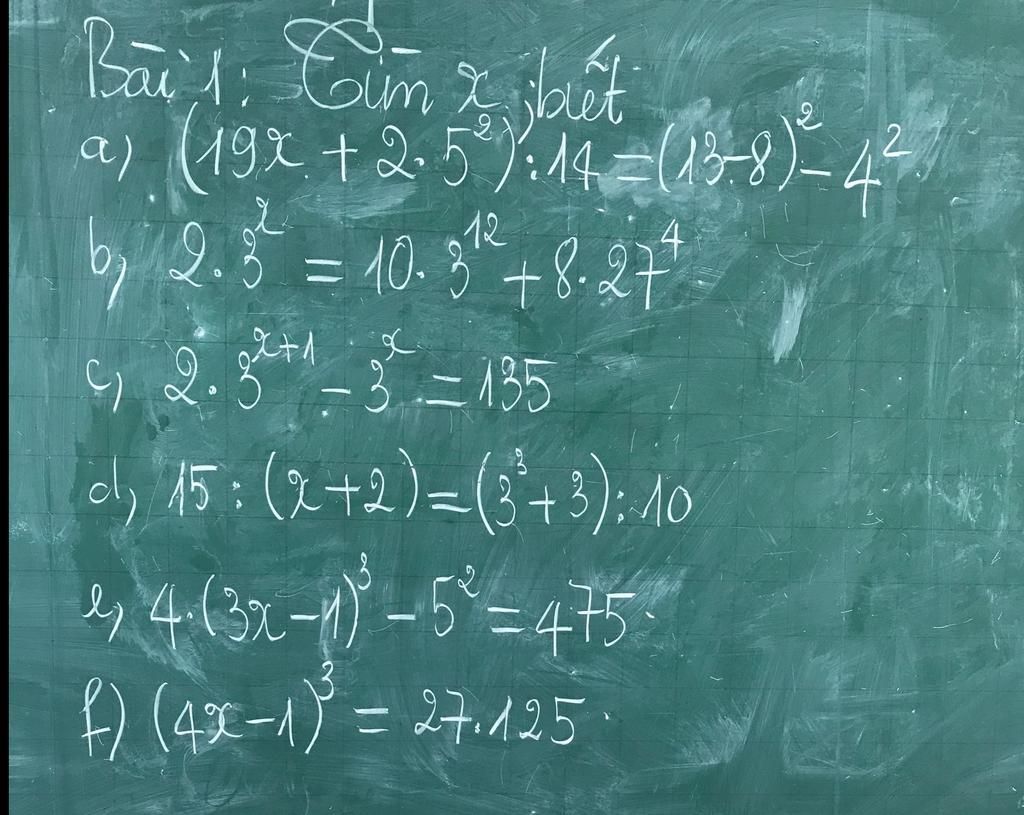 Bài 1: Tìm x, biết
a) (19x + 2.5²):14 = (13-8)² - 4²
b) 2.3ˣ = 10.3¹² + 8.27⁴
c) 2.3ˣ⁺¹ - 3ˣ = 135
d) 15:(x+2) = (3³+3):10
e) 4.(3x-1)³ - 5² = 475.
f) (4x-1)³ = 27.125.